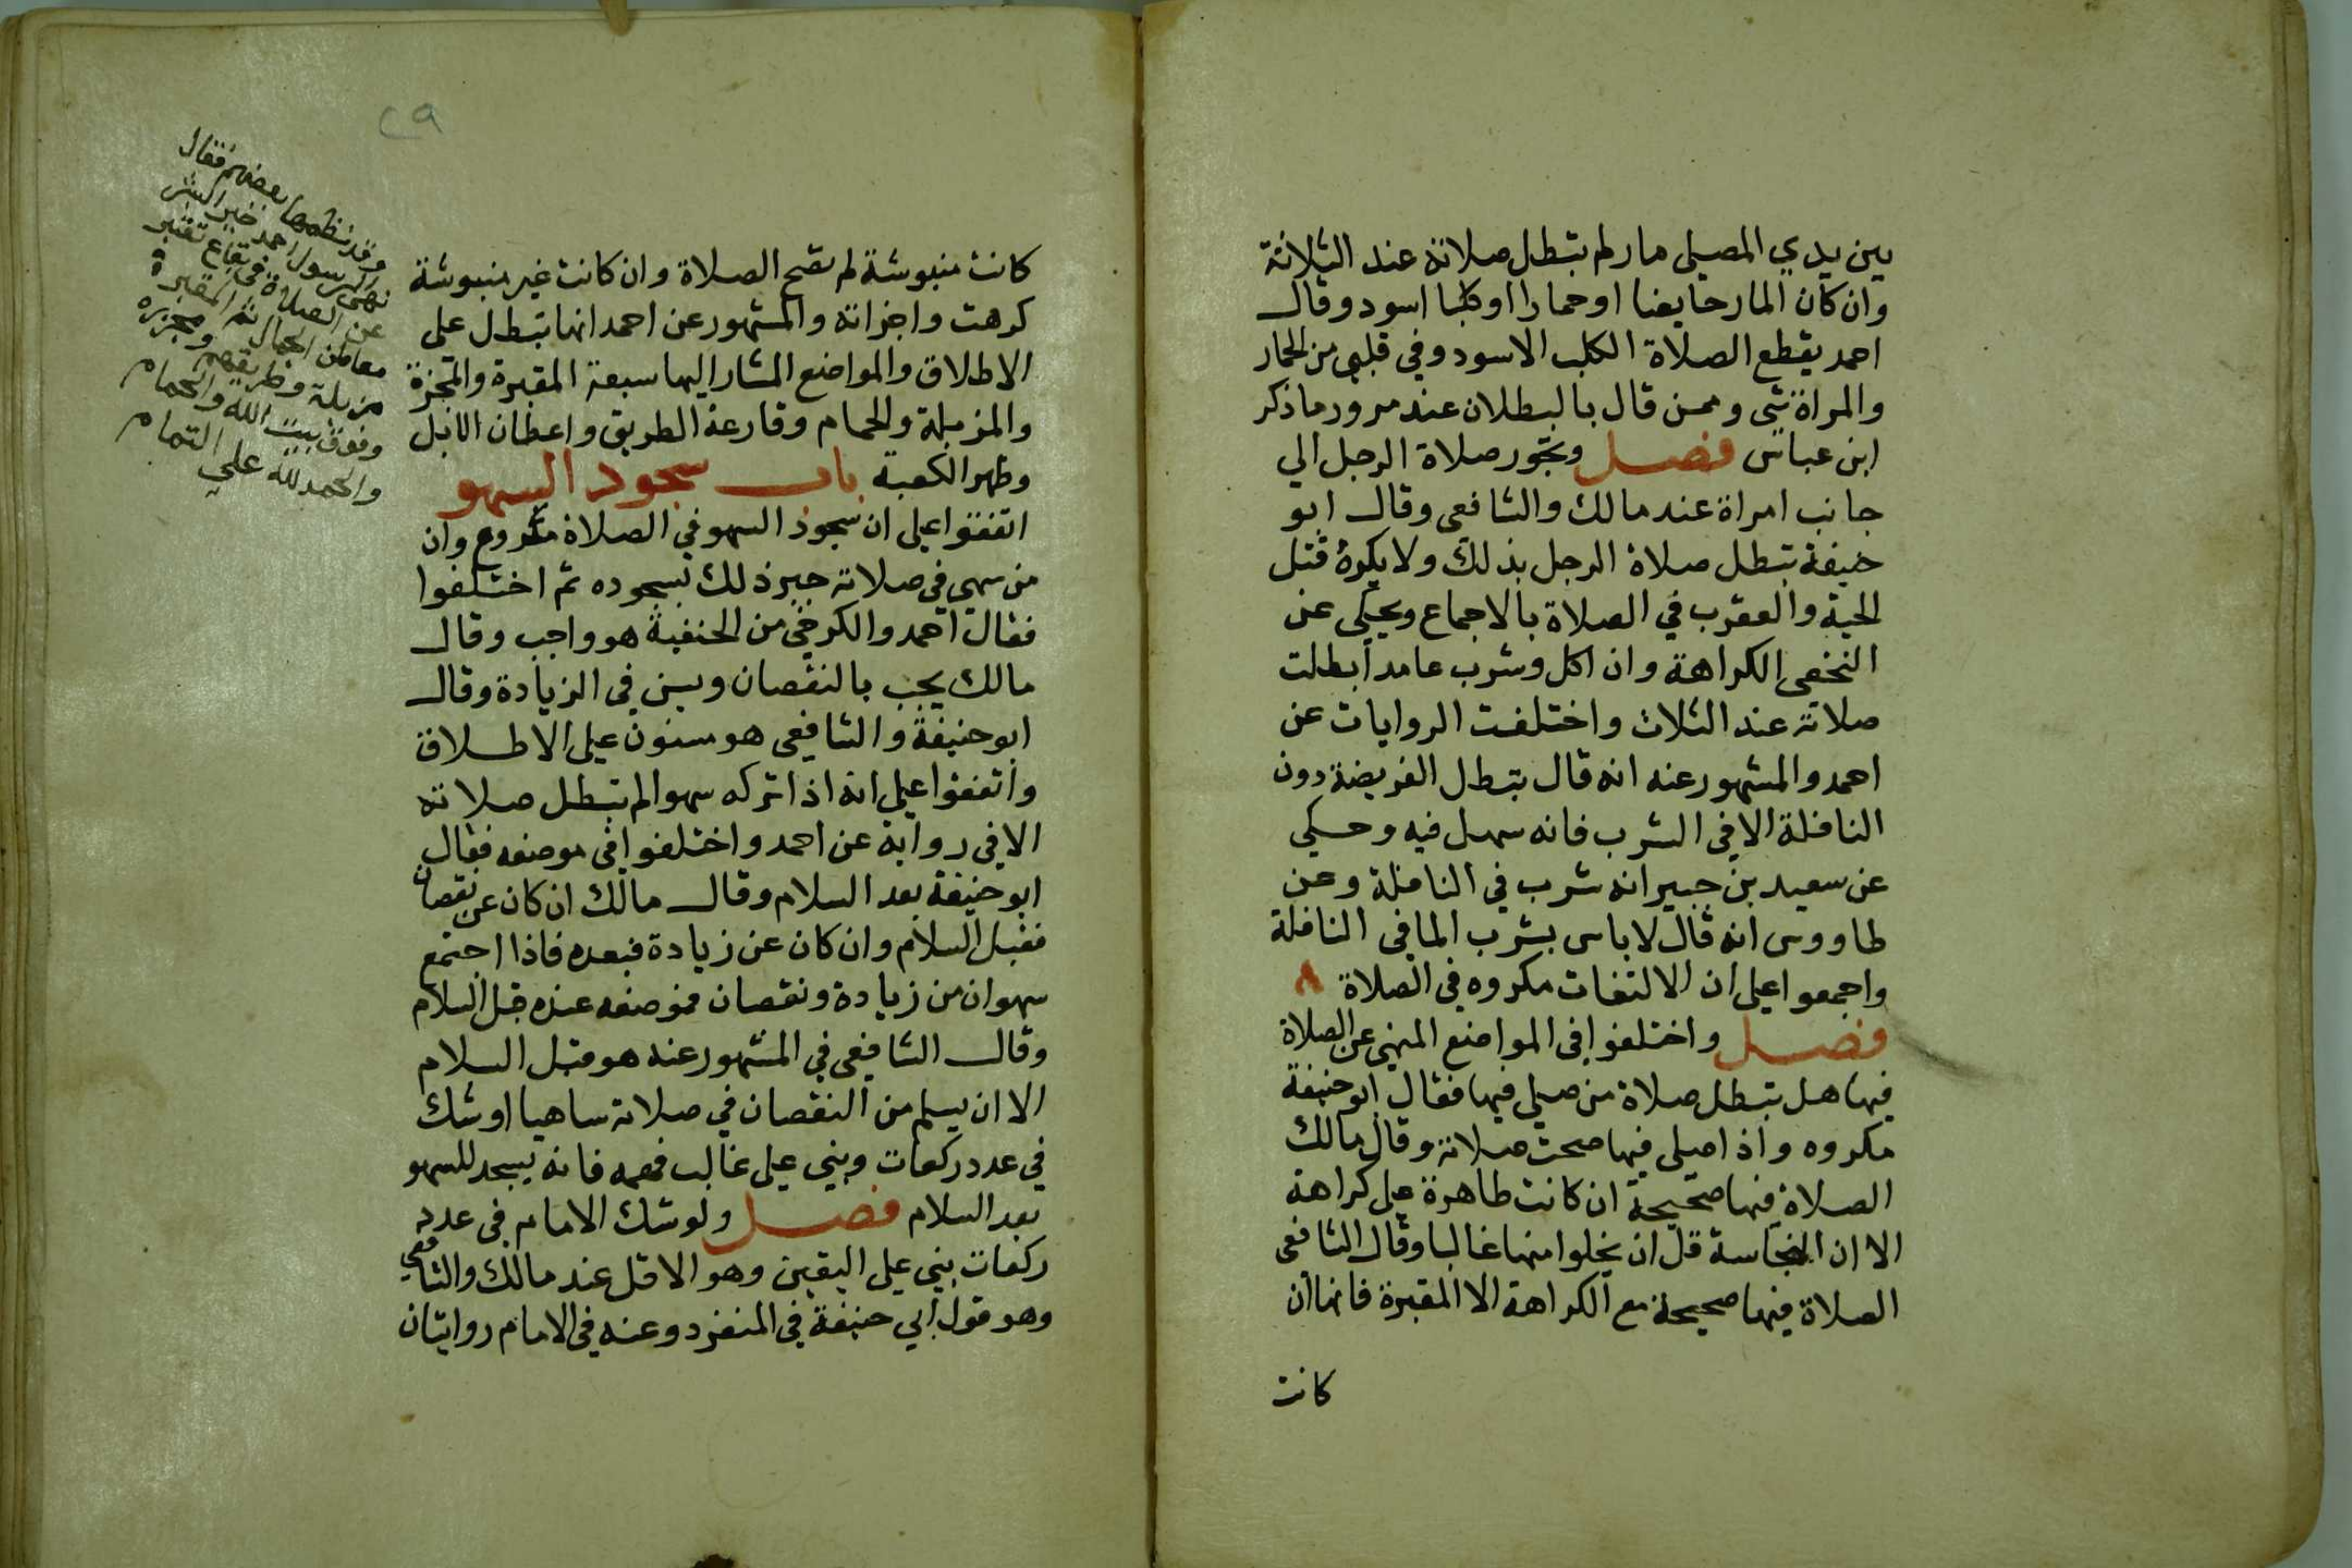 بين يدي المصلي مار لم تبطل صلاته عند الثلاثة
وان كان المار حايضا او حمارا او كلبا اسود وقال
احمد يقطع الصلاة الكلب الاسود وفي قلبي من الحمار
والمراة شي وممن قال بالبطلان عند مرور ما ذكر
ابن عباس فصل وتجوز صلاة الرجل الي
جانب امراة عند مالك والشافعي وقال ابو
حنيفة تبطل صلاة الرجل بذلك ولا يكره قتل
الحية والعقرب في الصلاة بالاجماع ويحكي عن
النخعي الكراهة وان اكل وشرب عامدا بطلت
صلاته عند الثلاث واختلفت الروايات عن
احمد والمشهور عنه انه قال تبطل الفريضة دون
النافلة الا في الشرب فانه سهل فيه وحكي
عن سعيد بن جبير انه شرب في النافلة وعن
طاووس انه قال لا باس بشرب الما في النافلة
واجمعوا علي ان الالتفات مكروه في الصلاة
فصل واختلفوا في المواضع المنهي عن الصلاة
فيها هل تبطل صلاة من صلي فيها فقال ابو حنيفة
مكروه واذا صلي فيها صحت صلاته وقال مالك
الصلاة فيها صحيحة ان كانت طاهرة علي كراهة
الا ان النجاسة قل ان يخلوا منها غالبا وقال الشافعي
الصلاة فيها صحيحة مع الكراهة الا المقبرة فانها ان
كانت
٢٩
كانت منبوشة لم تصح الصلاة وان كانت غير منبوشة
كرهت واجزاته والمشهور عن احمد انها تبطل علي
الاطلاق والمواضع المشار اليها سبعة المقبرة والمجزرة
والمزبلة والحمام وقارعة الطريق واعطان الابل
وظهر الكعبة باب سجود السهو
اتفقوا علي ان سجود السهو في الصلاة مشروع وان
من سهي في صلاته جبر ذلك بسجوده ثم اختلفوا
فقال احمد والكرخي من الحنفية هو واجب وقال
مالك يجب بالنقصان ويسن في الزيادة وقال
ابو حنيفة والشافعي هو مسنون علي الاطلاق
واتفقوا علي انه اذا تركه سهوا لم تبطل صلاته
الا في رواية عن احمد واختلفوا في موضعه فقال
ابو حنيفة بعد السلام وقال مالك ان كان عن نقصان
فقبل السلام وان كان عن زيادة فبعده فاذا اجتمع
سهوان من زيادة ونقصان فموضعه عنده قبل السلام
وقال الشافعي في المشهور عنه هو قبل السلام
الا ان يسلم من النقصان في صلاته ساهيا او شك
في عدد ركعات وبني علي غالب فهمه فانه يسجد للسهو
بعد السلام فصل ولو شك الامام في عدد
ركعات بني علي اليقين وهو الاقل عند مالك والشافعي
وهو قول ابي حنيفة في المنفرد وعنه في الامام روايتان
وقد نظمها بعضهم فقال
نهي الرسول احمد خير البشر
عن الصلاة في بقاع تعتبر
معاطن الجمال ثم المقبرة
مزبلة وطريقهم ومجزره
وفوق بيت الله والحمام
والحمد لله علي التمام